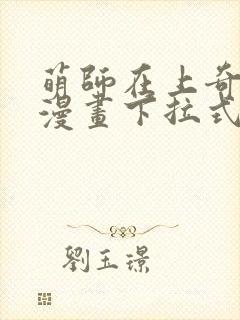 萌師在上奇
漫畫下拉式
劉玉璟